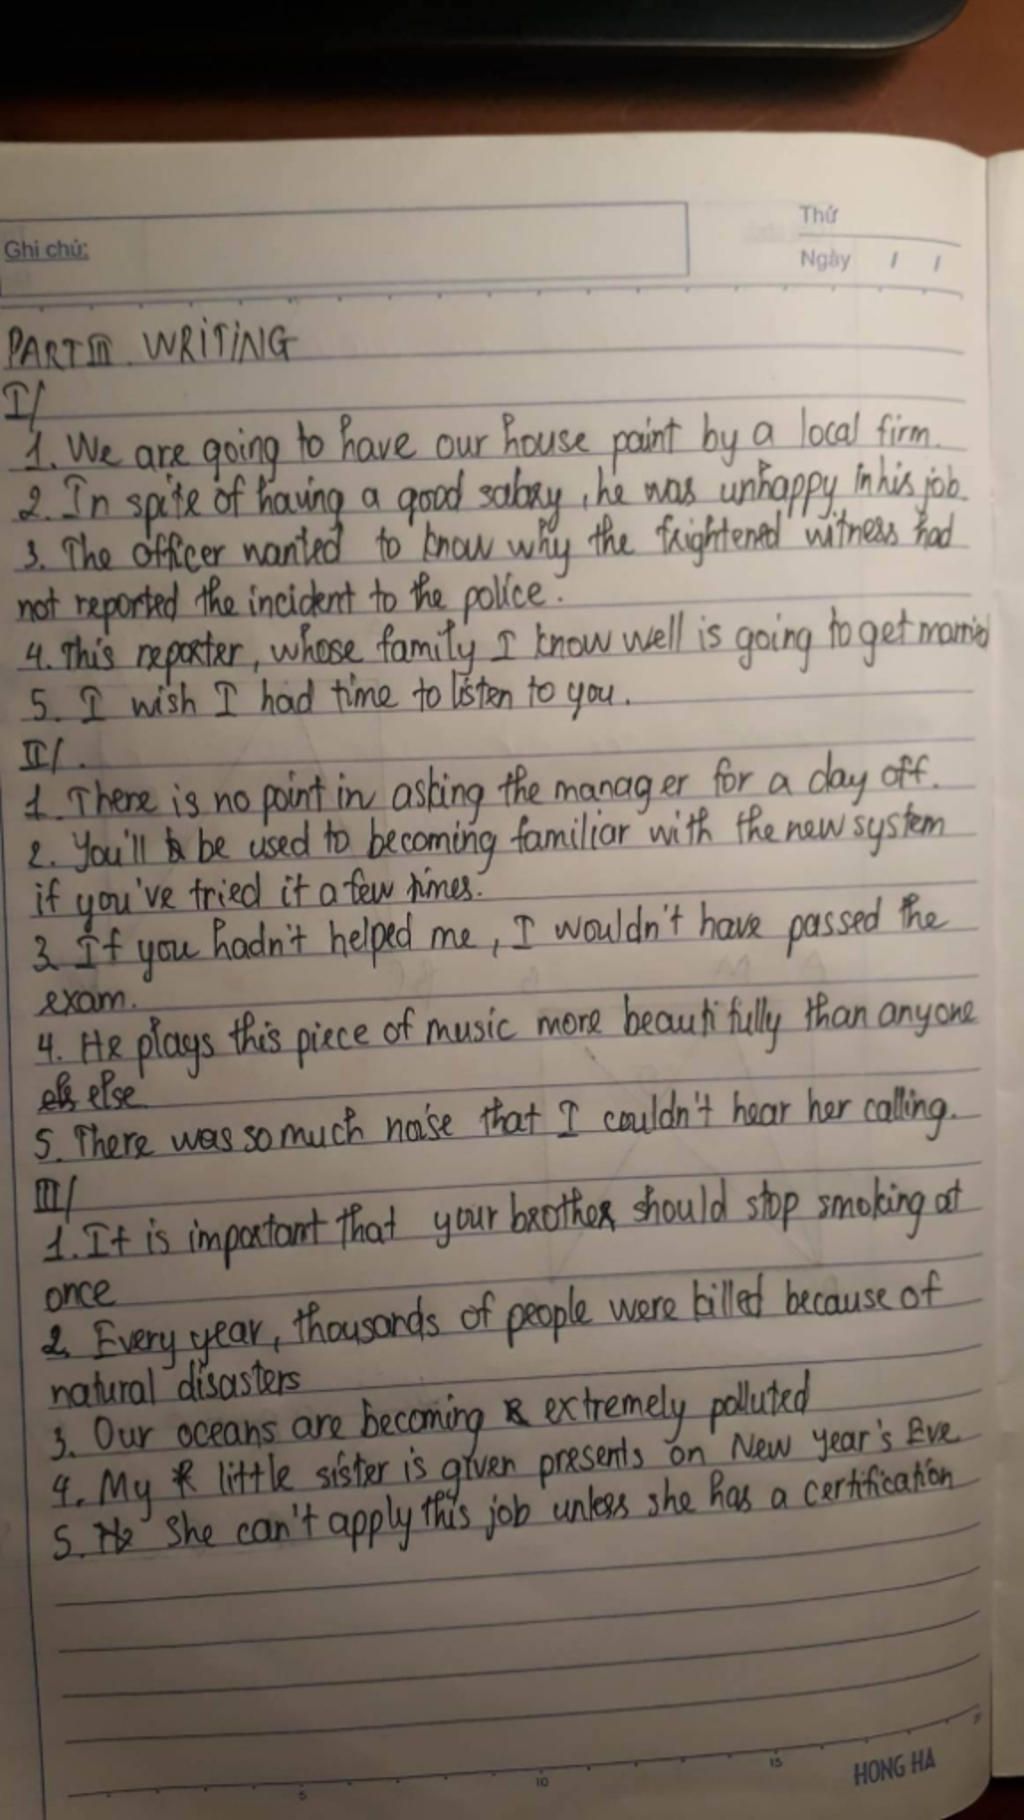 Ghi chú:
Thứ
Ngày / /
PART III. WRITING
I/
1. We are going to have our house paint by a local firm.
2. In spite of having a good salary, he was unhappy in his job.
3. The officer wanted to know why the frightened witness had
not reported the incident to the police.
4. This reporter, whose family I know well is going to get married
5. I wish I had time to listen to you.
II/.
1. There is no point in asking the manager for a day off.
2. You'll be used to becoming familiar with the new system
if you've tried it a few times.
3. If you hadn't helped me, I wouldn't have passed the
exam.
4. He plays this piece of music more beautifully than anyone
else
5. There was so much noise that I couldn't hear her calling.
III/
1. It is important that your brother should stop smoking at
once
2. Every year, thousands of people were killed because of
natural disasters
3. Our oceans are becoming extremely polluted
4. My little sister is given presents on New year's Eve
5. She can't apply this job unless she has a certification
5 10 15
HONG HA